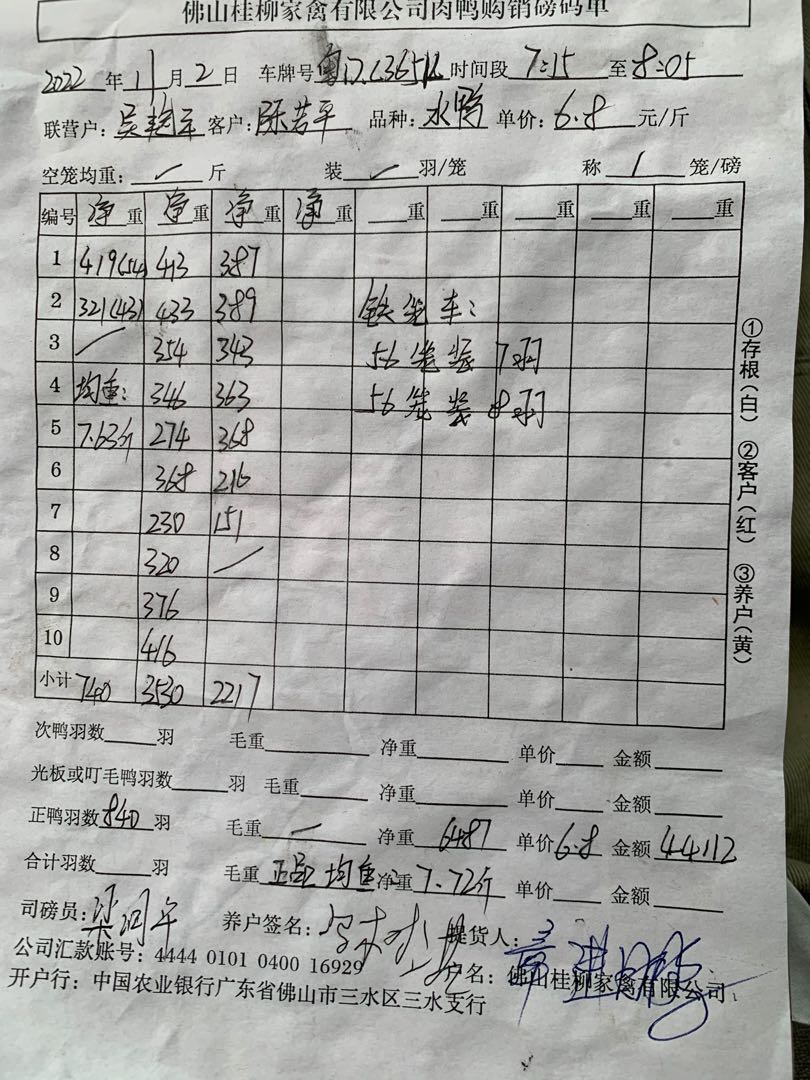 佛山桂柳家禽有限公司肉鸭购销磅码单
2022年11月2日 车牌号 时间段 7:15 至 8:05
联营户: 客户:陈若平 品种:水鸭 单价:6.8 元/斤
空笼均重: / 斤 装 / 羽/笼 称 1 笼/磅
编号 净重 净重 净重 净重 重 重 重 重 重
1 419(54) 413 387
2 321(43) 433 389 铁笼车:
3 / 354 343 56笼装7羽
4 均重: 346 363 56笼装8羽
5 7.63斤 274 368
6 368 216
7 230 151
8 320 /
9 376
10 416
小计 740 3530 2217
次鸭羽数 羽 毛重 净重 单价 金额
光板或叮毛鸭羽数 羽 毛重 净重 单价 金额
正鸭羽数840羽 毛重 / 净重 6487 单价6.8 金额 44112
合计羽数 羽 毛重 正品均重: 净重 7.72斤 单价 金额
司磅员: 养户签名: 提货人:
公司汇款账号:4444 0101 0400 16929 户名:佛山桂柳家禽有限公司
开户行:中国农业银行广东省佛山市三水区三水支行
①存根(白) ②客户(红) ③养户(黄)